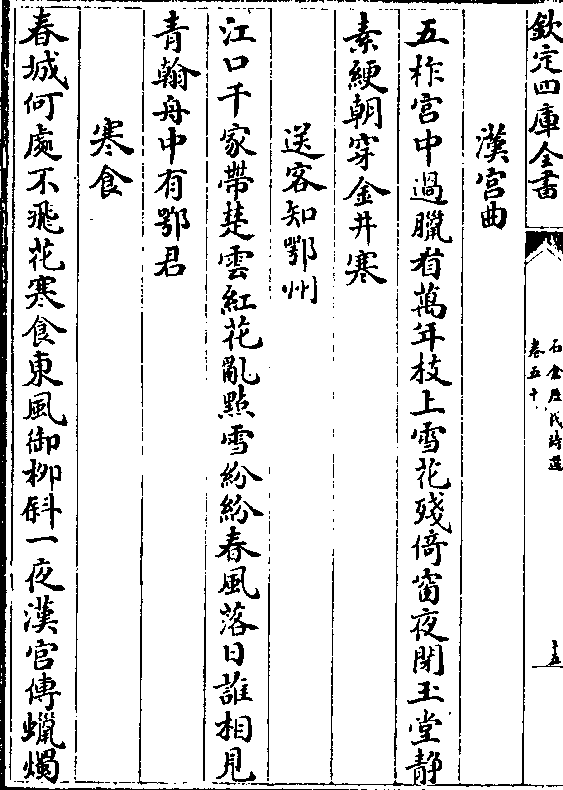 欽定四庫全書
石倉歷代詩選
卷五十
十五
漢宮曲
五柞宮中過臘看萬年枝上雪花殘倚窗夜閉玉堂靜
素綆朝穿金井寒
送客知鄂州
江口千家帶楚雲紅花亂點雪紛紛春風落日誰相見
青翰舟中有鄂君
寒食
春城何處不飛花寒食東風御柳斜一夜漢宮傳蠟燭